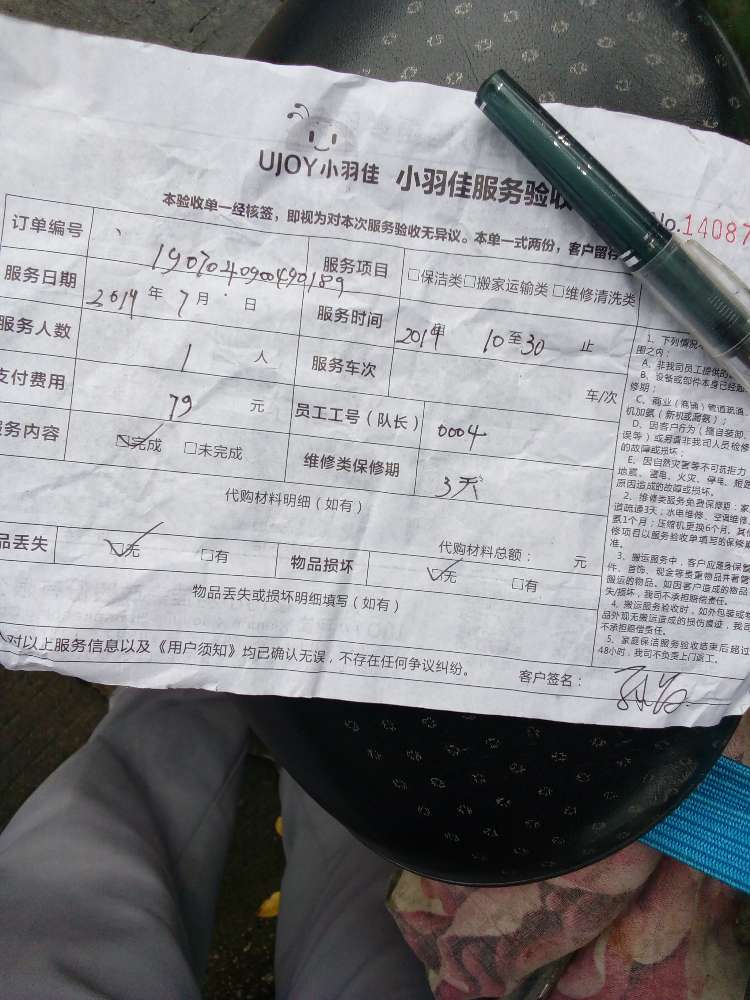 UJOY小羽佳 小羽佳服务验收
No.14087
本验收单一经核签，即视为对本次服务验收无异议。本单一式两份，客户留存
订单编号 1907040900490189 服务项目 □保洁类□搬家运输类□维修清洗类
服务日期 2019年7月 日 服务时间 2019年 10至30 止
服务人数 1 人 服务车次 车/次
支付费用 79 元 员工工号（队长） 0004
服务内容 ☑完成 □未完成 维修类保修期 3天
代购材料明细（如有）
代购材料总额： 元
品丢失 ☑无 □有 物品损坏 ☑无 □有
物品丢失或损坏明细填写（如有）
对以上服务信息以及《用户须知》均已确认无误，不存在任何争议纠纷。
客户签名：
1、下列情况
围之内：
A、非我司员工提供的
B、设备或部件本身已经超
修期；
C、商业（商铺）管道疏通
机加氨（新机或漏氨）；
D、因客户行为（擅自装卸、
误等）或另请非我司人员检修
的故障或损坏；
E、因自然灾害等不可抗拒力
地震、雷电、火灾、停电、短路
原因造成的故障或损坏。
2、维修类服务免费保修期：家
道疏通3天；水电维修、空调维修
氨1个月；压缩机更换6个月，其
修项目以服务验收单填写的保修
准。
3、搬运服务中，客户应随身保管
件、首饰、现金等贵重物品并看管
搬运的物品。如因客户造成的物品
失/损坏，我司不承担赔偿责任。
4、搬运服务验收时，如外包装或
品外观无搬运造成的损伤痕迹，我司
不承担赔偿责任。
5、家庭保洁服务验收结束后超过
48小时，我司不负责上门返工。